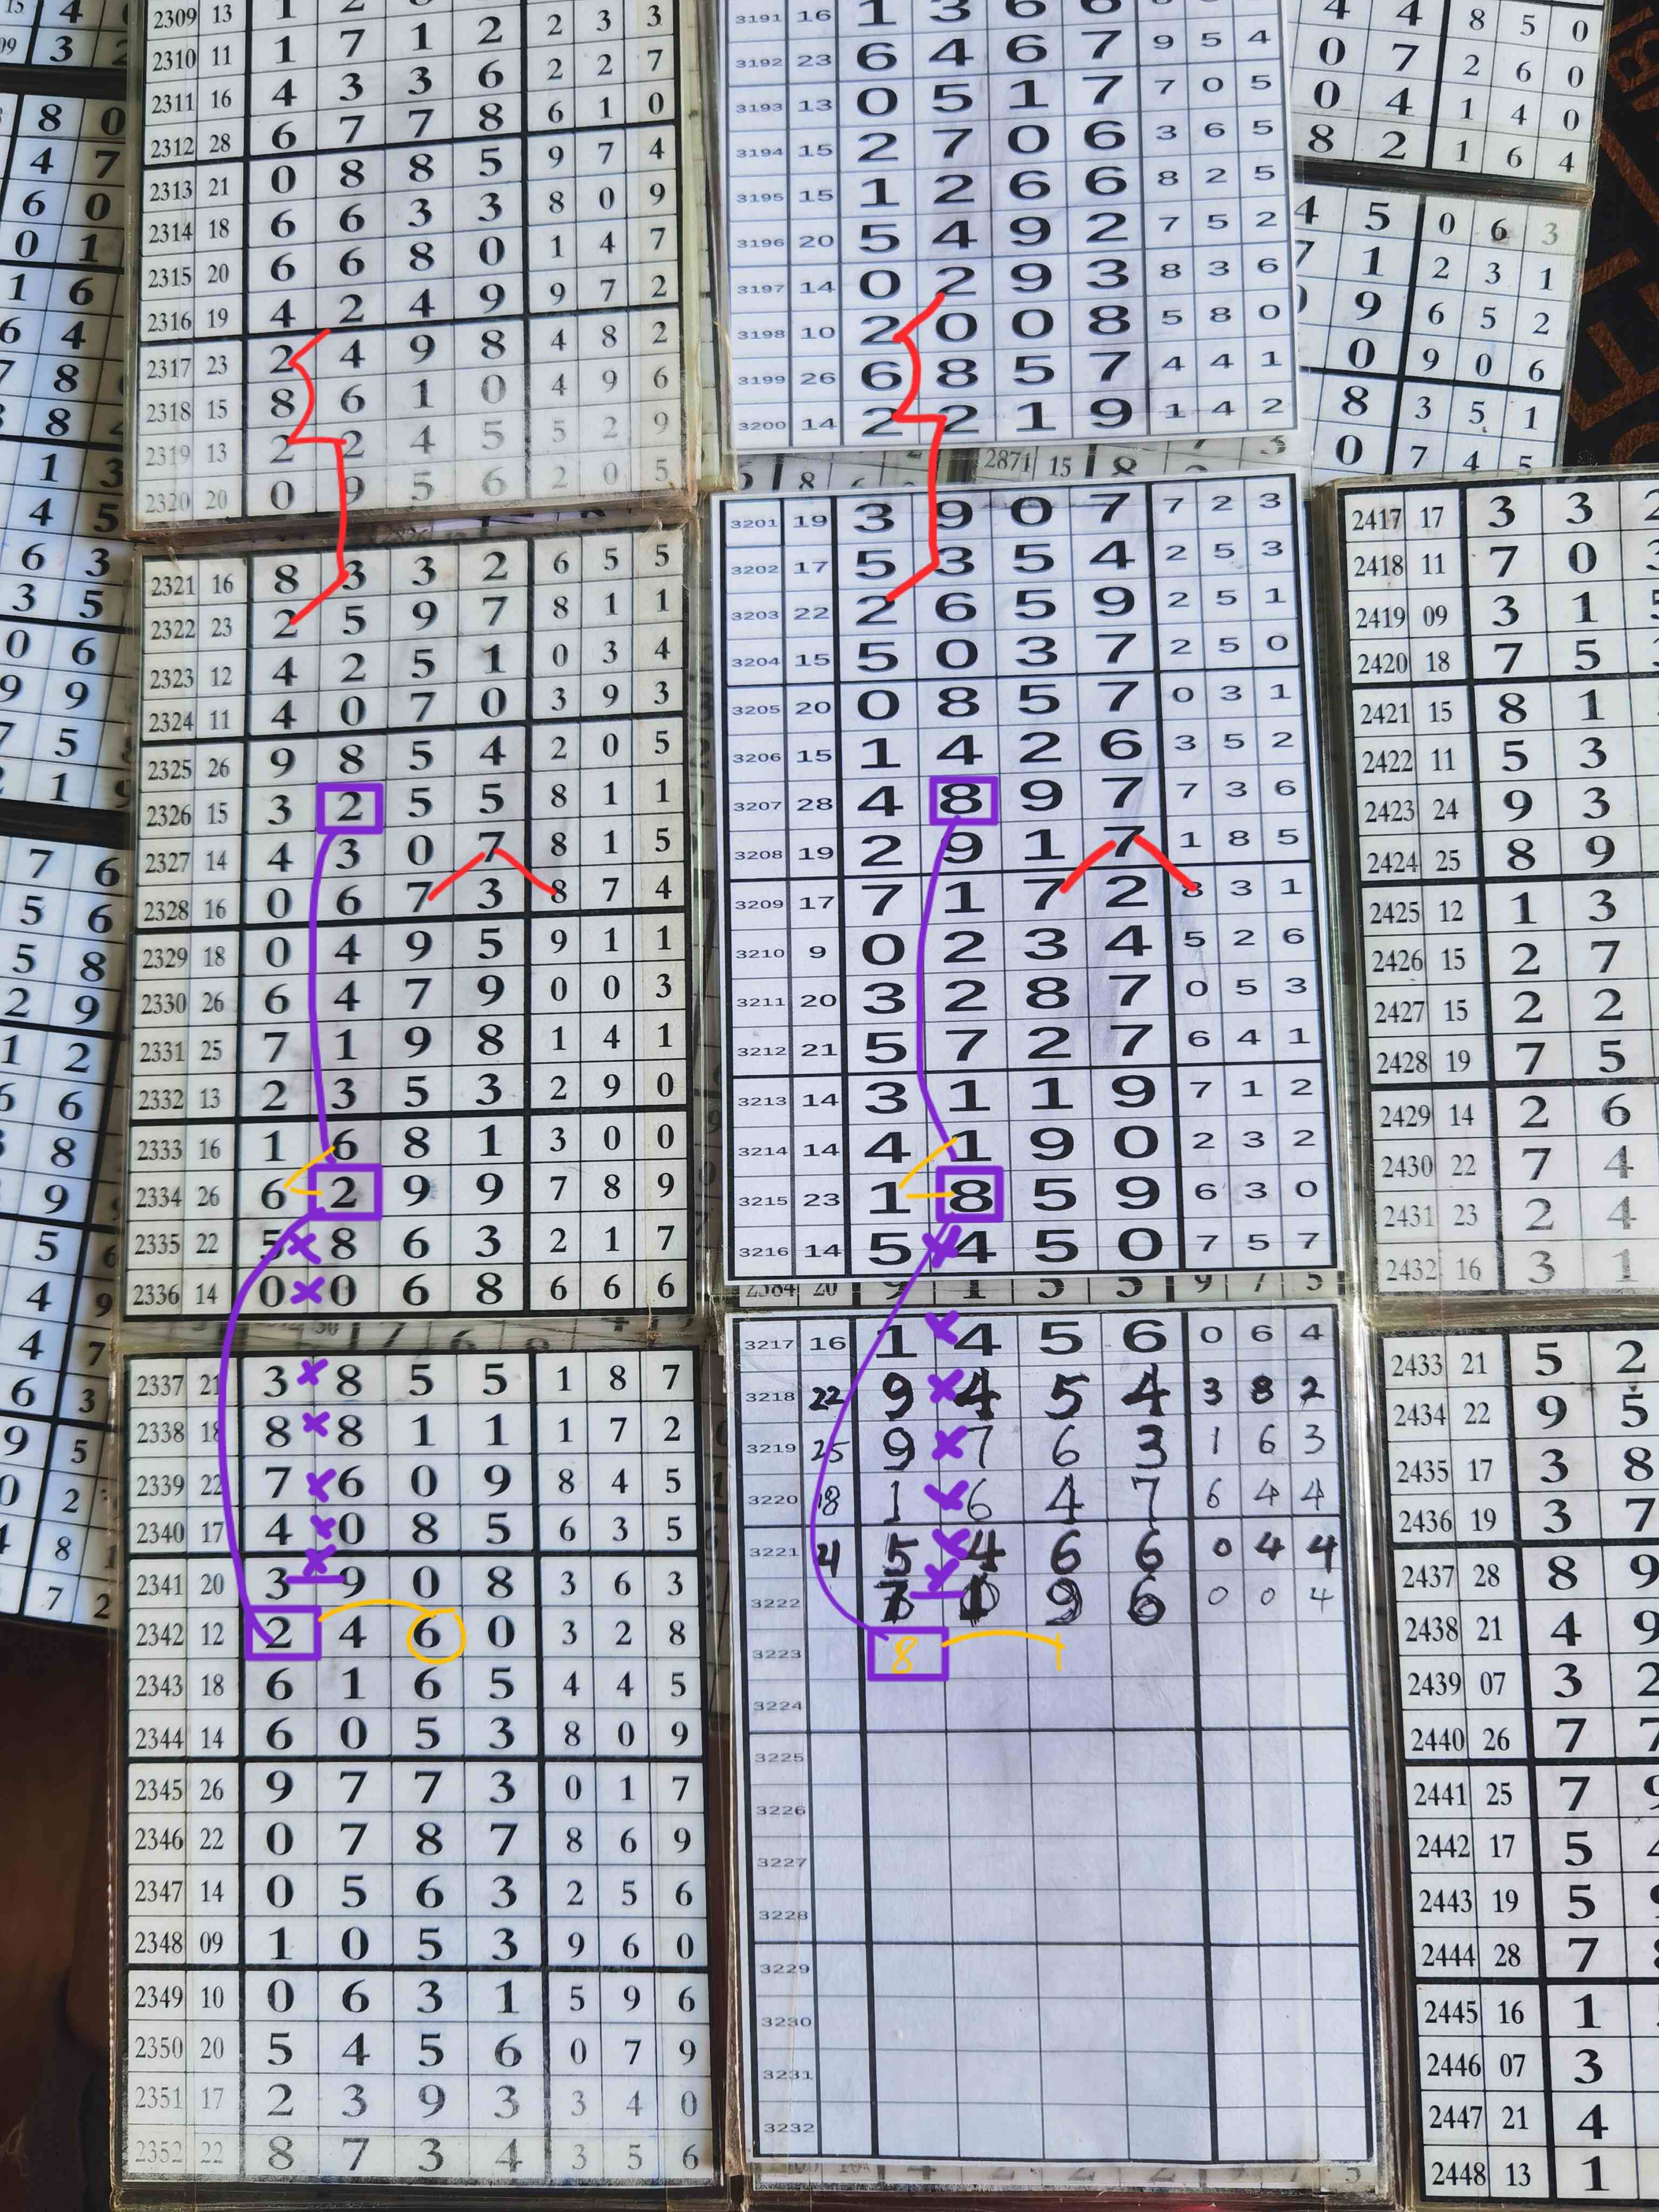 2309 13 1 2 2 3 3
2310 11 1 7 1 2 2 2 7
2311 16 4 3 3 6 2 2 7
2312 28 6 7 7 8 6 1 0
2313 21 0 8 8 5 9 7 4
2314 18 6 6 3 3 8 0 9
2315 20 6 6 8 0 1 4 7
2316 19 4 2 4 9 9 7 2
2317 23 2 4 9 8 4 8 2
2318 15 8 6 1 0 4 9 6
2319 13 2 2 4 5 5 2 9
2320 20 0 9 5 6 2 0 5
2321 16 8 3 3 2 6 5 5
2322 23 2 5 9 7 8 1 1
2323 12 4 2 5 1 0 3 4
2324 11 4 0 7 0 3 9 3
2325 26 9 8 5 4 2 0 5
2326 15 3 2 5 5 8 1 1
2327 14 4 3 0 7 8 1 5
2328 16 0 6 7 3 8 7 4
2329 18 0 4 9 5 9 1 1
2330 26 6 4 7 9 0 0 3
2331 25 7 1 9 8 1 4 1
2332 13 2 3 5 3 2 9 0
2333 16 1 6 8 1 3 0 0
2334 26 6 2 9 9 7 8 9
2335 22 5 × 8 6 3 2 1 7
2336 14 0 × 0 6 8 6 6 6
2337 21 3 × 8 5 5 1 8 7
2338 18 8 × 8 1 1 1 7 2
2339 22 7 × 6 0 9 8 4 5
2340 17 4 × 0 8 5 6 3 5
2341 20 3 × 9 0 8 3 6 3
2342 12 2 4 6 0 3 2 8
2343 18 6 1 6 5 4 4 5
2344 14 6 0 5 3 8 0 9
2345 26 9 7 7 3 0 1 7
2346 22 0 7 8 7 8 6 9
2347 14 0 5 6 3 2 5 6
2348 09 1 0 5 3 9 6 0
2349 10 0 6 3 1 5 9 6
2350 20 5 4 5 6 0 7 9
2351 17 2 3 9 3 3 4 0
2352 22 8 7 3 4 3 5 6
3191 16 1 3 6 6
3192 23 6 4 6 7 9 5 4
3193 13 0 5 1 7 7 0 5
3194 15 2 7 0 6 3 6 5
3195 15 1 2 6 6 8 2 5
3196 20 5 4 9 2 7 5 2
3197 14 0 2 9 3 8 3 6
3198 10 2 0 0 8 5 8 0
3199 26 6 8 5 7 4 4 1
3200 14 2 2 1 9 1 4 2
2871 15 8
3201 19 3 9 0 7 7 2 3
3202 17 5 3 5 4 2 5 3
3203 22 2 6 5 9 2 5 1
3204 15 5 0 3 7 2 5 0
3205 20 0 8 5 7 0 3 1
3206 15 1 4 2 6 3 5 2
3207 28 4 8 9 7 7 3 6
3208 19 2 9 1 7 1 8 5
3209 17 7 1 7 2 8 3 1
3210 9 0 2 3 4 5 2 6
3211 20 3 2 8 7 0 5 3
3212 21 5 7 2 7 6 4 1
3213 14 3 1 1 9 7 1 2
3214 14 4 1 9 0 2 3 2
3215 23 1 8 5 9 6 3 0
3216 14 5 × 4 5 0 7 5 7
2384 20 9 1 5 5 9 7 5
3217 16 1 × 4 5 6 0 6 4
3218 22 9 × 4 5 4 3 8 2
3219 25 9 × 7 6 3 1 6 3
3220 18 1 × 6 4 7 6 4 4
3221 21 5 × 4 6 6 0 4 4
3222 × 9 6 0 0 4
3223 8 1
3224
3225
3226
3227
3228
3229
3230
3231
3232
4 4 8 5 0
0 7 2 6 0
0 4 1 4 0
8 2 1 6 4
4 5 0 6 3
7 1 2 3 1
9 6 5 2
0 9 0 6
8 3 5 1
0 7 4 5
2417 17 3 3 2
2418 11 7 0 3
2419 09 3 1 5
2420 18 7 5
2421 15 8 1
2422 11 5 3
2423 24 9 3
2424 25 8 9
2425 12 1 3
2426 15 2 7
2427 15 2 2
2428 19 7 5
2429 14 2 6
2430 22 7 4
2431 23 2 4
2432 16 3 1
2433 21 5 2
2434 22 9 5
2435 17 3 8
2436 19 3 7
2437 28 8 9
2438 21 4 9
2439 07 3 2
2440 26 7 7
2441 25 7 9
2442 17 5 4
2443 19 5 9
2444 28 7 8
2445 16 1
2446 07 3
2447 21 4
2448 13 1